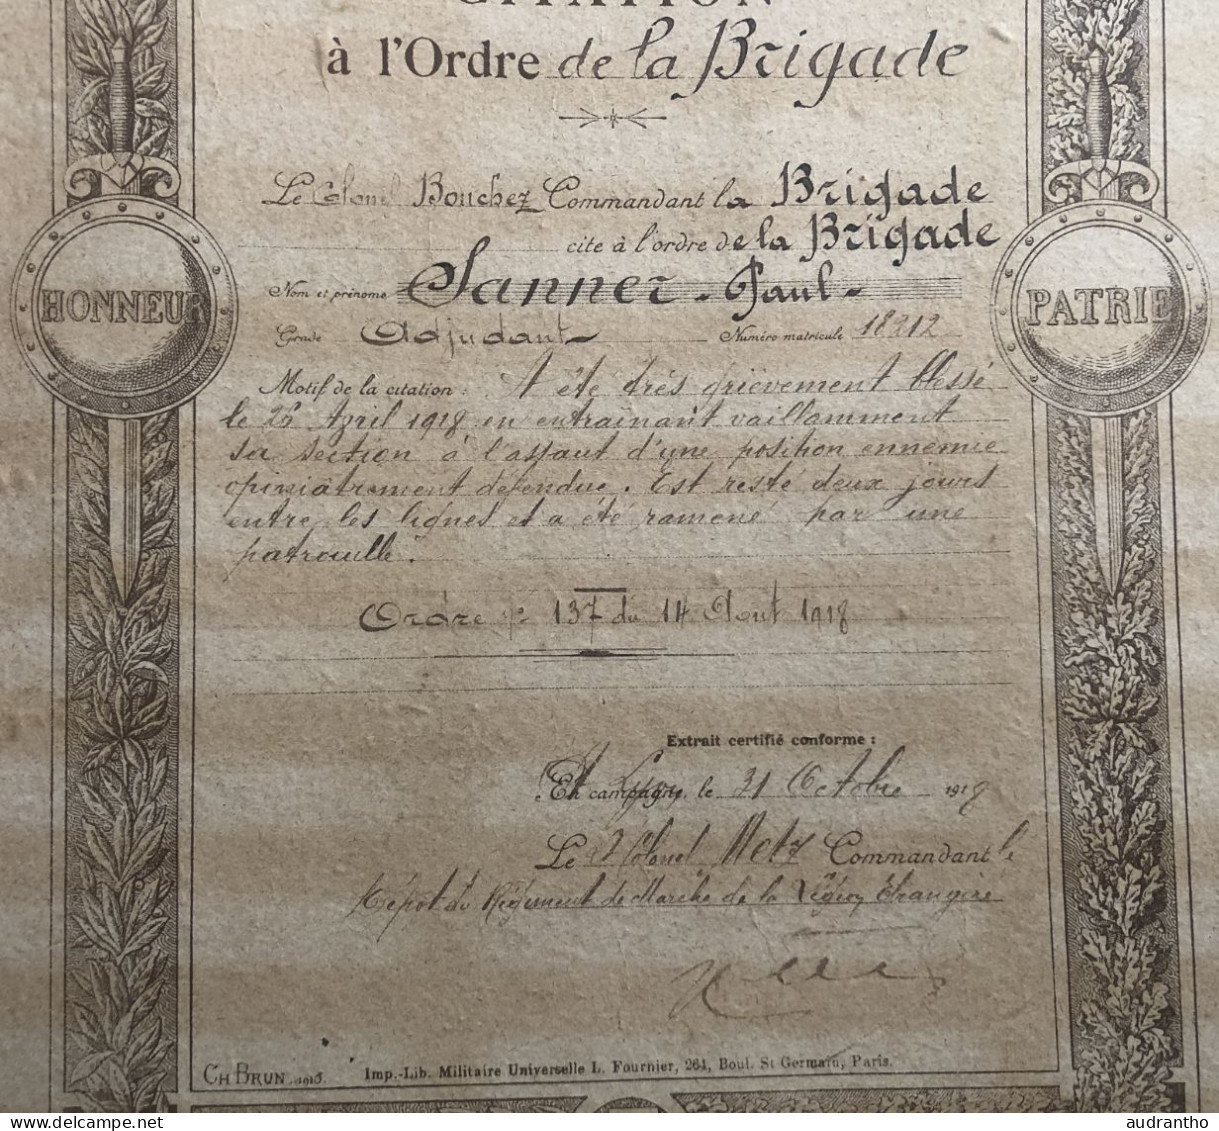 CITATION
à l'Ordre de la Brigade
Le Colonel Bouchez Commandant la Brigade
cite à l'ordre de la Brigade
Nom et prénoms Sanner - Paul -
Grade Adjudant - Numéro matricule 18212
HONNEUR
PATRIE
Motif de la citation : A été très grièvement blessé
le 26 Avril 1918 en entraînant vaillamment
sa section à l'assaut d'une position ennemie
opiniâtrement défendue. Est resté deux jours
entre les lignes et a été ramené par une
patrouille.
Ordre No 137 du 14 Août 1918
Extrait certifié conforme :
A Lyon, le 31 Octobre 1918
Le Lt Colonel Metz Commandant le
Dépôt du Régiment de Marche de la Légion Etrangère
CH BRUN. 1915.
Imp.-Lib. Militaire Universelle L. Fournier, 264, Boul. St Germain, Paris.
delcampe.net
audrantho